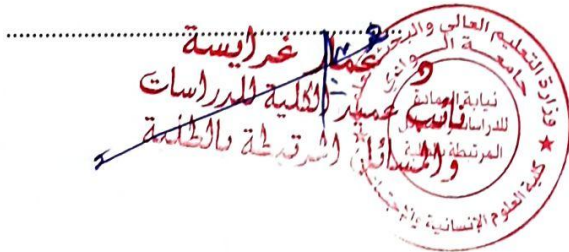 عمار غرايسة
نائب عميد الكلية للدراسات
والمسائل المرتبطة بالطلبة
وزارة التعليم العالي والبحث
جامعة الوادي
نيابة العمادة
للدراسات
المرتبطة
كلية العلوم الإنسانية والإجتماعية